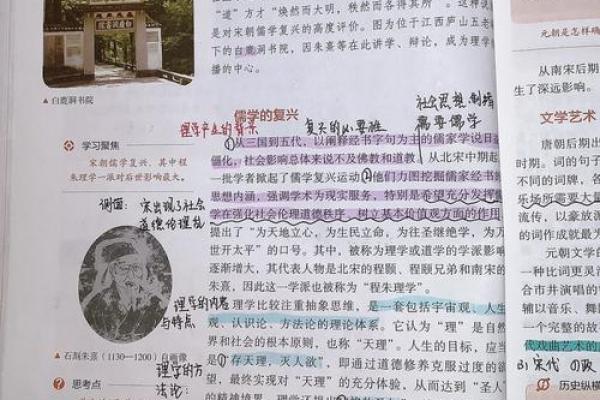 "道"方才"焕然而大明，秩然而各得其所"。这种说
是对宋代儒学复兴的高度评价。图为位于江西庐山五老
下的白鹿洞书院，因朱熹等在此讲学、辩论，成为理学
播的中心。
▲白鹿洞书院
儒学的复兴
理学产生的背景
复兴的必要性
社会思想、制靖
需要儒学
学习聚焦
宋朝儒学复兴，其中程
朱理学一派对后世影响最大。
①从三国到五代，以阐释经书字句为主的儒家学说日益
僵化，社会影响总体来说不及佛教和道教。从北宋中期起，
一批学者掀起了儒学复兴运动②他们力图挖掘儒家经书的
思想内涵，强调学术为现实服务，特别是希望充分发挥儒
学在强化社会伦理道德秩序、树立基本价值观方面的作用
提出了"为天地立心，为生民立命，为往圣继绝学，为万
世开太平"的口号。其中，被称为理学或道学的学派影响
逐渐增大，其代表人物是北宋的程颢、程颐兄弟和南宋的
朱熹，因此这一学派也被称为"程朱理学"。
侧面：宋出现了社会
道德伦理
理学的内容
与特点
理学比较注重抽象思维，是一套包括宇宙观、人生
观、认识论、方法论的理论体系。它认为"理"是自然
界和社会的根本原则，也称"天理"。人生的目标，应当
是①"存天理，灭人欲"，即通过道德修养克服过度的欲
望，最终实现对"天理"的充分体验，从而达到"圣人"
的精神境界。理学还提出
▲石刻朱熹（1130—1200）自画像
思考点
理学的方
法论：
元朝是怎样确
从南宋后期
生了深远影响。
文学艺术
唐朝后期出
时期。词的句子
不同的词牌，各
乐场所需要大量
流传，以豪放派
的词作成就最为
元朝文学的
一种比词更灵活
合市井演唱的
辅以音乐、舞蹈
一个完整的故
代戏曲艺术的
3）宋代 の政
历史纵横